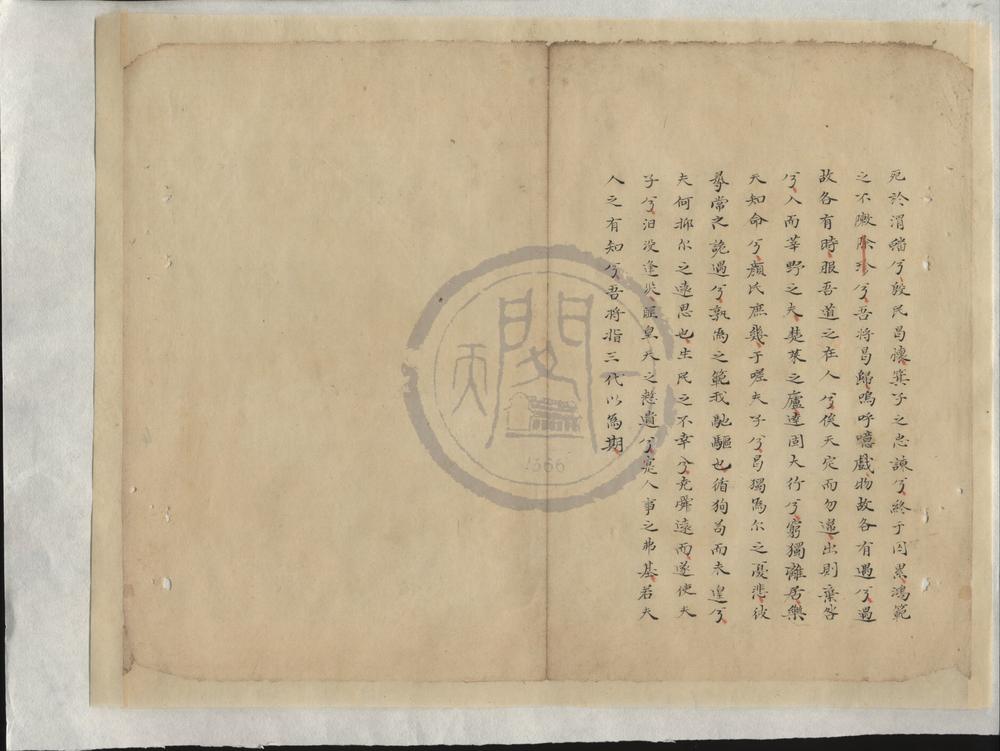 死於渭獝兮殷民曷懷箕子之忠諫兮終于囚累鴻範
之不陳兮吾將曷歸嗚呼噫戲物故各有遇兮遇
故各有時服吾道之在人兮俟天定而勿違出則棄咎
兮人而莘野之夫楚萊之廬達固大行兮窮獨離居樂
天知命兮顏氏庶幾于嗟夫子兮曷獨爲尔之憂悲彼
尋常之詭遇兮孰爲之範我馳驅也循狗苟而未遑兮
夫何抑尔之遠思也生民之不幸兮堯舜遠而遂使夫
子兮汩沒逢此匪皇天之憗遺兮寔人事之弗基若夫
人之有知兮吾將指三代以爲期
天一閣
1566